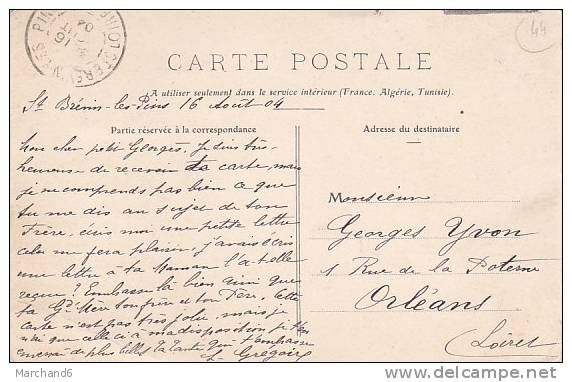 44
CARTE POSTALE
A utiliser seulement dans le service intérieur (France, Algérie, Tunisie).
St Brévin-les-Pins 16 Août 04
Partie réservée à la correspondance
Adresse du destinataire
Mon cher petit Georges, je suis très
heureuse de recevoir ta carte, mais
je ne comprends pas bien ce que
tu me dis au sujet de ton
frère, écris moi une petite lettre
cela me fera plaisir, j'avais écris
une lettre à ta Maman l'a-t-elle
reçue? Embrasse la bien ainsi que
ta Gd Mère ton frère et ton Père. Cette
carte n'est pas très jolie, mais je
n'ai que celle ci à ma disposition je t'en
enverrai de plus belles Ta tante qui t'embrasse
L. Grégoire
Monsieur
Georges Yvon
1 Rue de la Poterne
Orléans
Loiret
Marchand6
delcampe.net